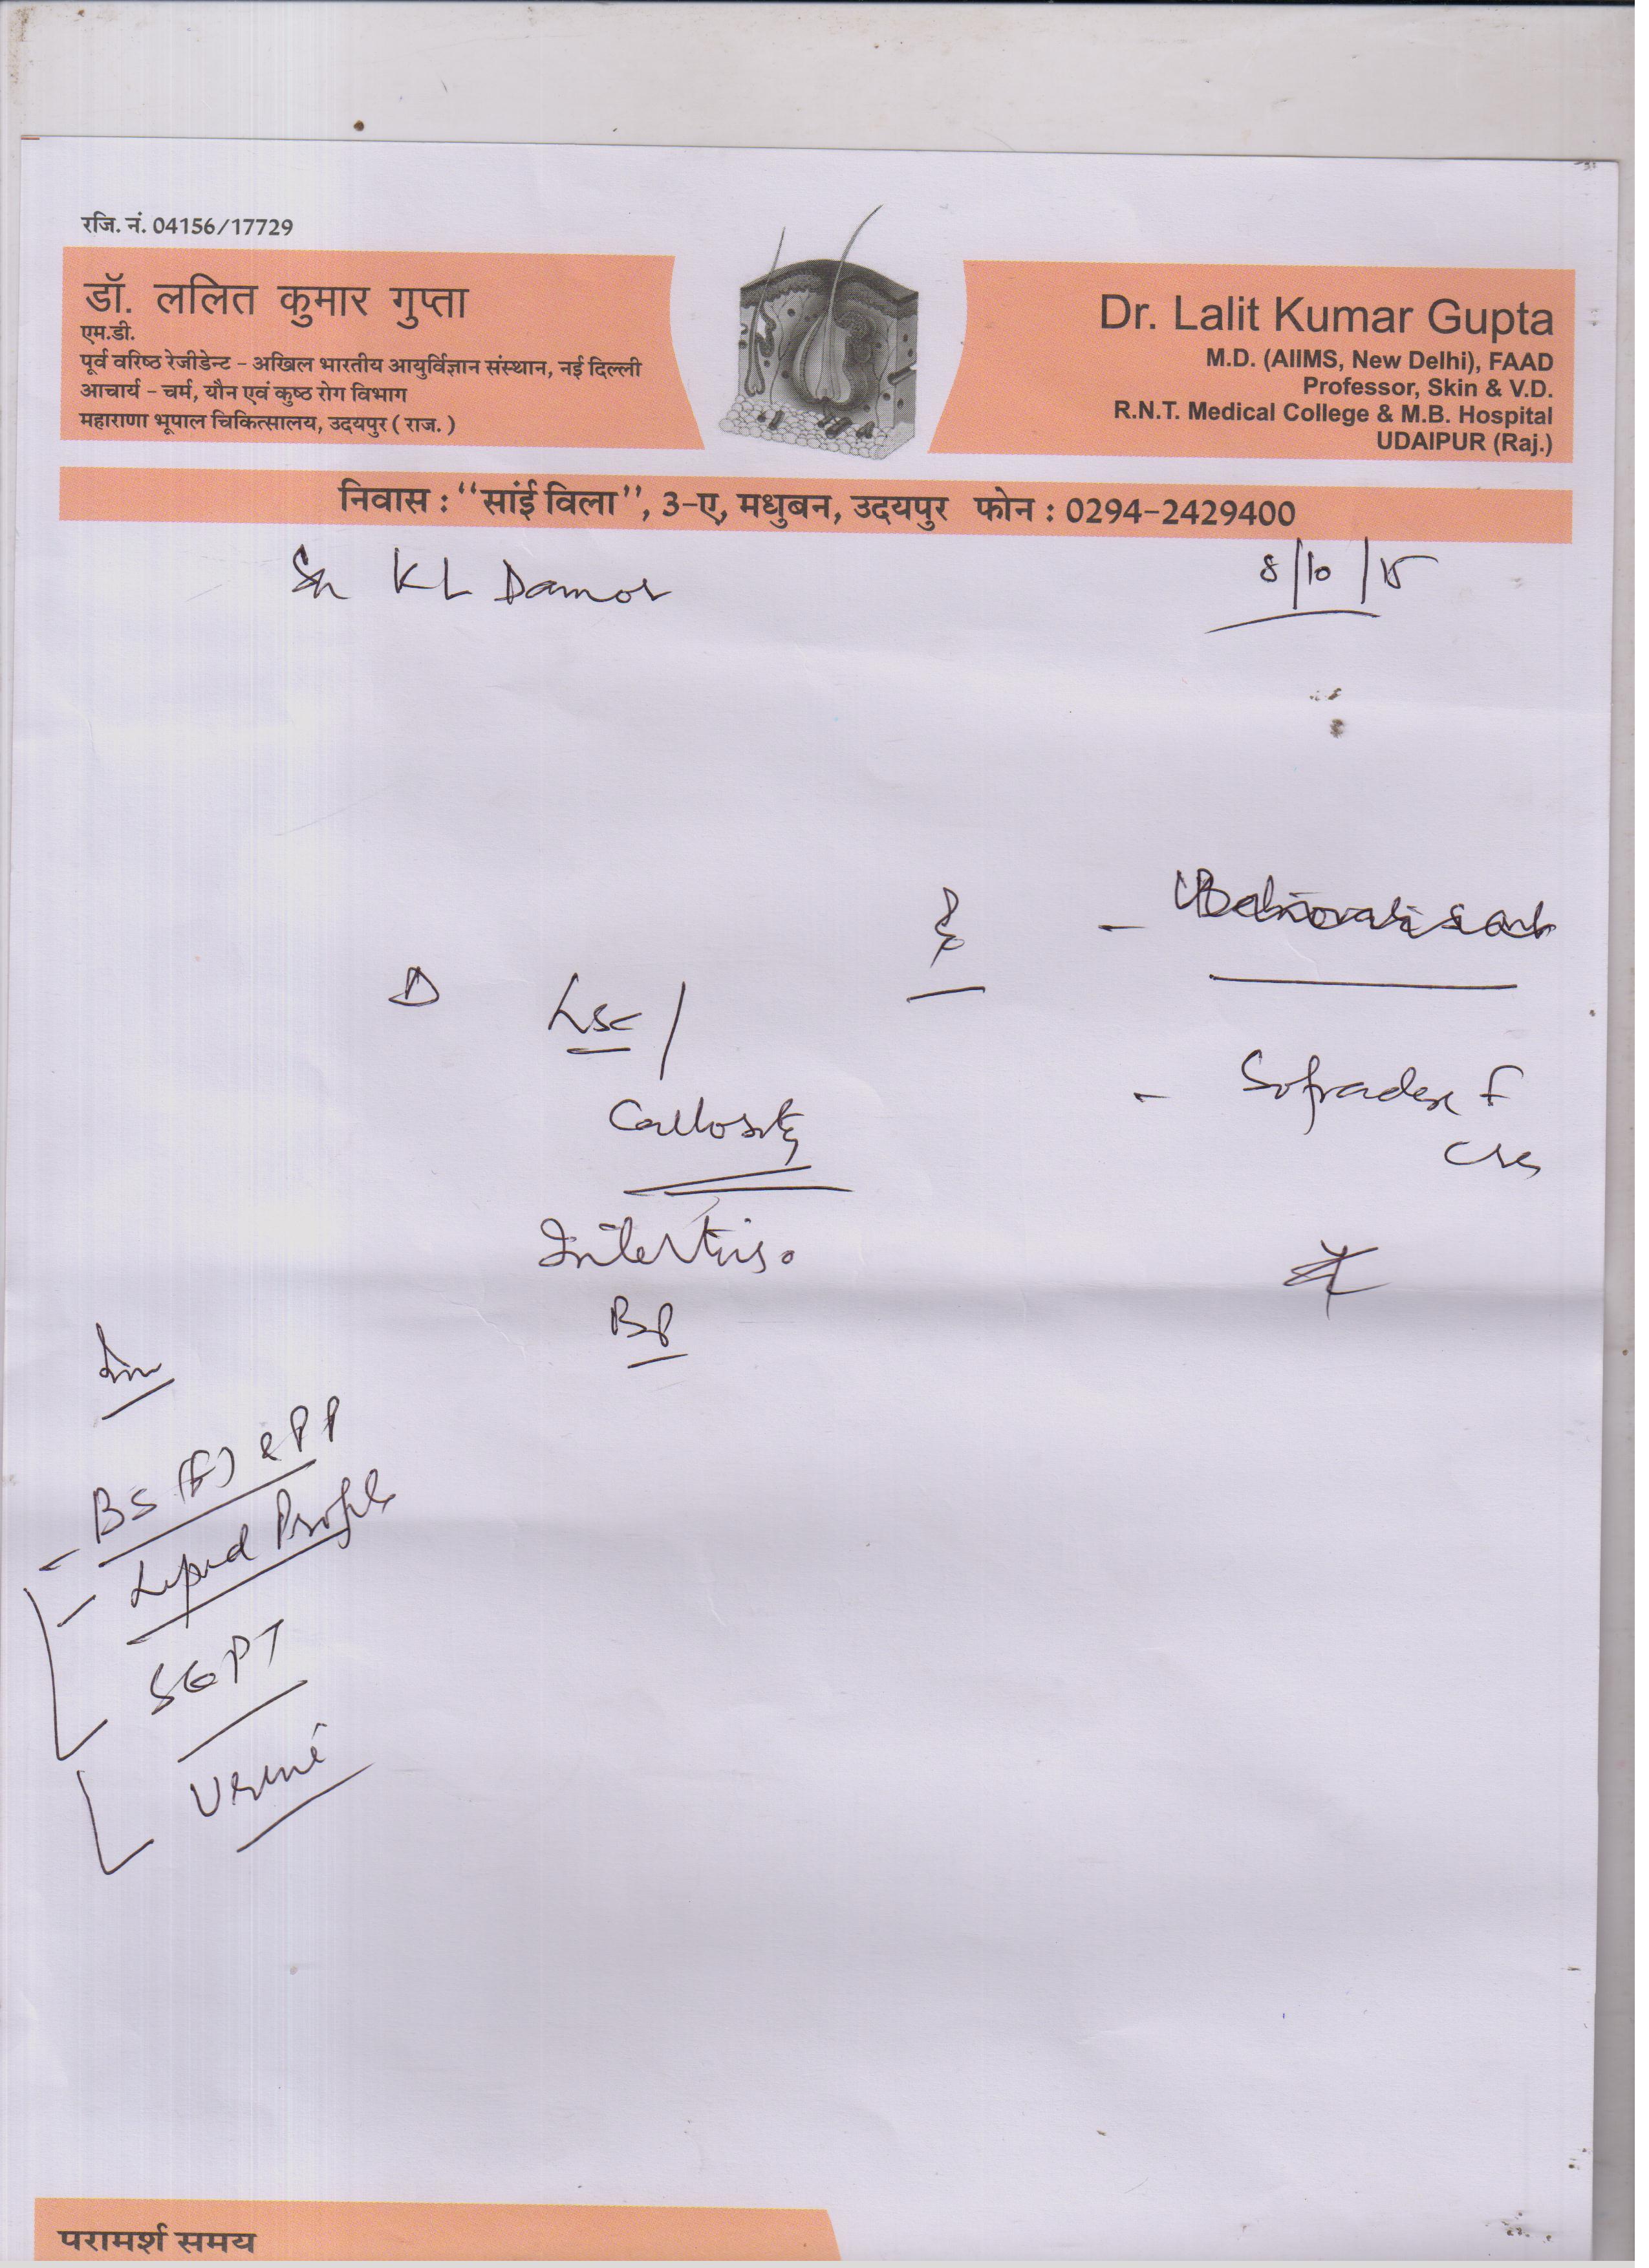 रजि. नं. 04156/17729
डॉ. ललित कुमार गुप्ता
एम.डी.
पूर्व वरिष्ठ रेजीडेन्ट - अखिल भारतीय आयुर्विज्ञान संस्थान, नई दिल्ली
आचार्य - चर्म, यौन एवं कुष्ठ रोग विभाग
महाराणा भूपाल चिकित्सालय, उदयपुर ( राज. )
Dr. Lalit Kumar Gupta
M.D. (AIIMS, New Delhi), FAAD
Professor, Skin & V.D.
R.N.T. Medical College & M.B. Hospital
UDAIPUR (Raj.)
निवास : "सांई विला", 3-ए, मधुबन, उदयपुर फोन : 0294-2429400
KL Damor
8/10/15
D LSC /
Callosity
Intertrigo
BP
- Sofradex F
BS (F) & PP
- Lipid Profile
SGPT
Urine
परामर्श समय